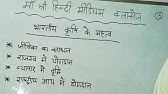 माँ श्री हिन्दी मीडियम क्लासेज
भारतीय कृषि के महत्व
* जीविका का साधन
* राजस्व में योगदान
* व्यापार में वृद्धि
* राष्ट्रीय आय में योगदान